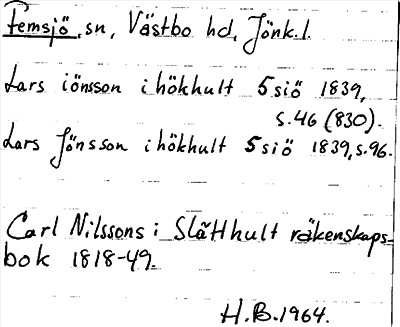 Femsjö, sn, Västbo hd, Jönk.l.
Lars iönsson i hökhult 5siö 1839,
s.46 (830).
Lars Jönsson i hökhult 5siö 1839, s.96.
Carl Nilssons i Slätthult räkenskaps-
bok 1818-49.
H.B. 1964.